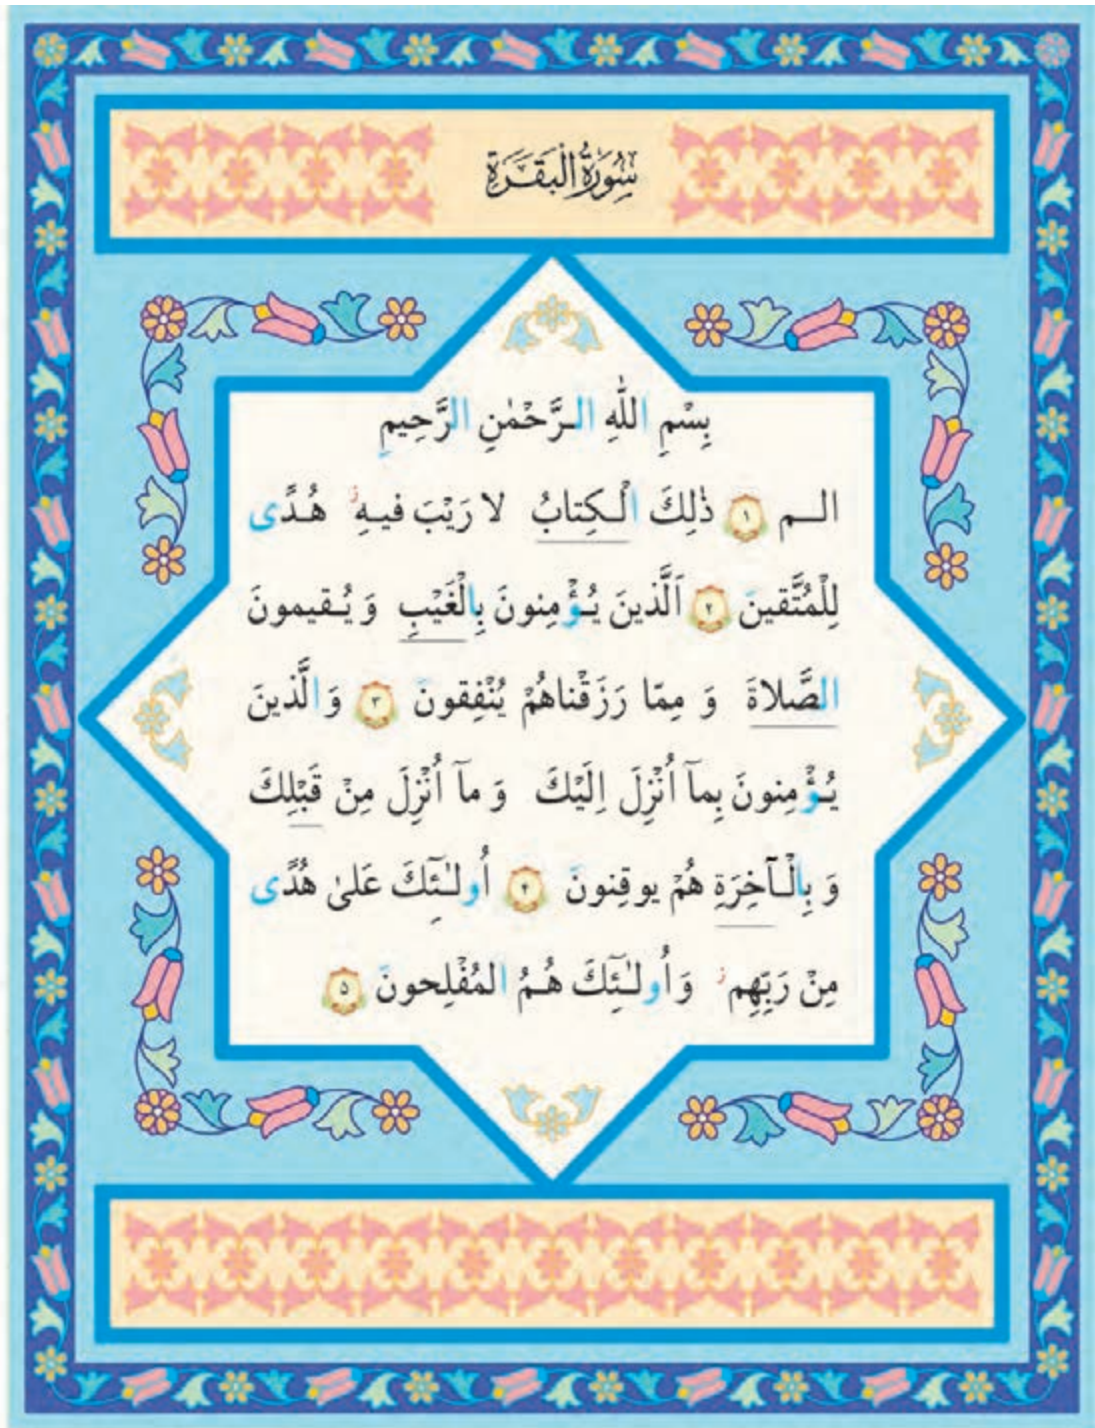 سُورَةُ الْبَقَرَةِ
بِسْمِ اللّٰهِ الرَّحْمٰنِ الرَّحِيمِ
الم ۱ ذٰلِكَ الْكِتابُ لا رَيْبَ فيهِ ز هُدًى
لِلْمُتَّقينَ ۲ اَلَّذينَ يُؤْمِنونَ بِالْغَيْبِ وَ يُقيمونَ
الصَّلاةَ وَ مِمّا رَزَقْناهُمْ يُنْفِقونَ ۳ وَالَّذينَ
يُؤْمِنونَ بِمآ اُنْزِلَ اِلَيْكَ وَ مآ اُنْزِلَ مِنْ قَبْلِكَ
وَ بِالْآخِرَةِ هُمْ يوقِنونَ ۴ اُولٰـئِٓكَ عَلىٰ هُدًى
مِنْ رَبِّهِم ز وَ اُولٰـئِٓكَ هُمُ المُفْلِحونَ ۵